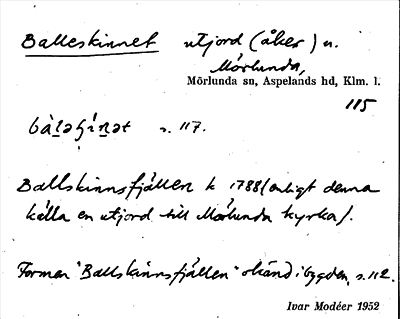 Balleskinnet utjord (åker) u.
Mörlunda,
Mörlunda sn, Aspelands hd, Klm. l.
115
s. 117.
Ballskinnsfjällen k 1788 (enligt denna
källa en utjord till Mörlunda kyrka).
Formen "Ballskinnsfjällen" okänd i bygden, s. 112.
Ivar Modéer 1952